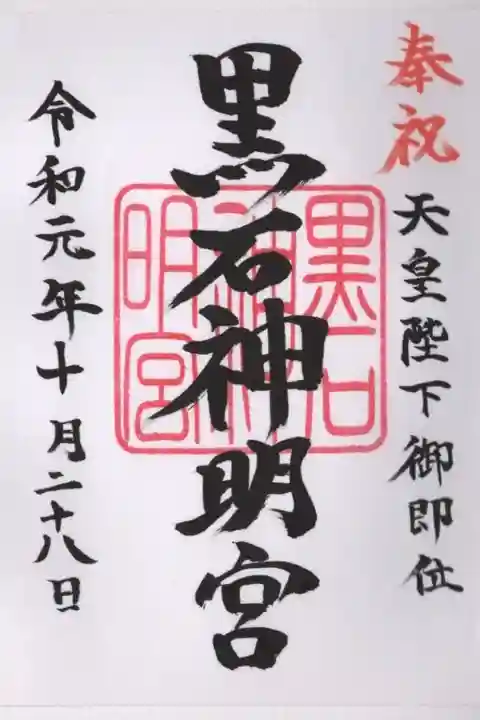 奉祝 天皇陛下御即位
黒石神明宮
黒石
神明宮
令和元年十月二十八日